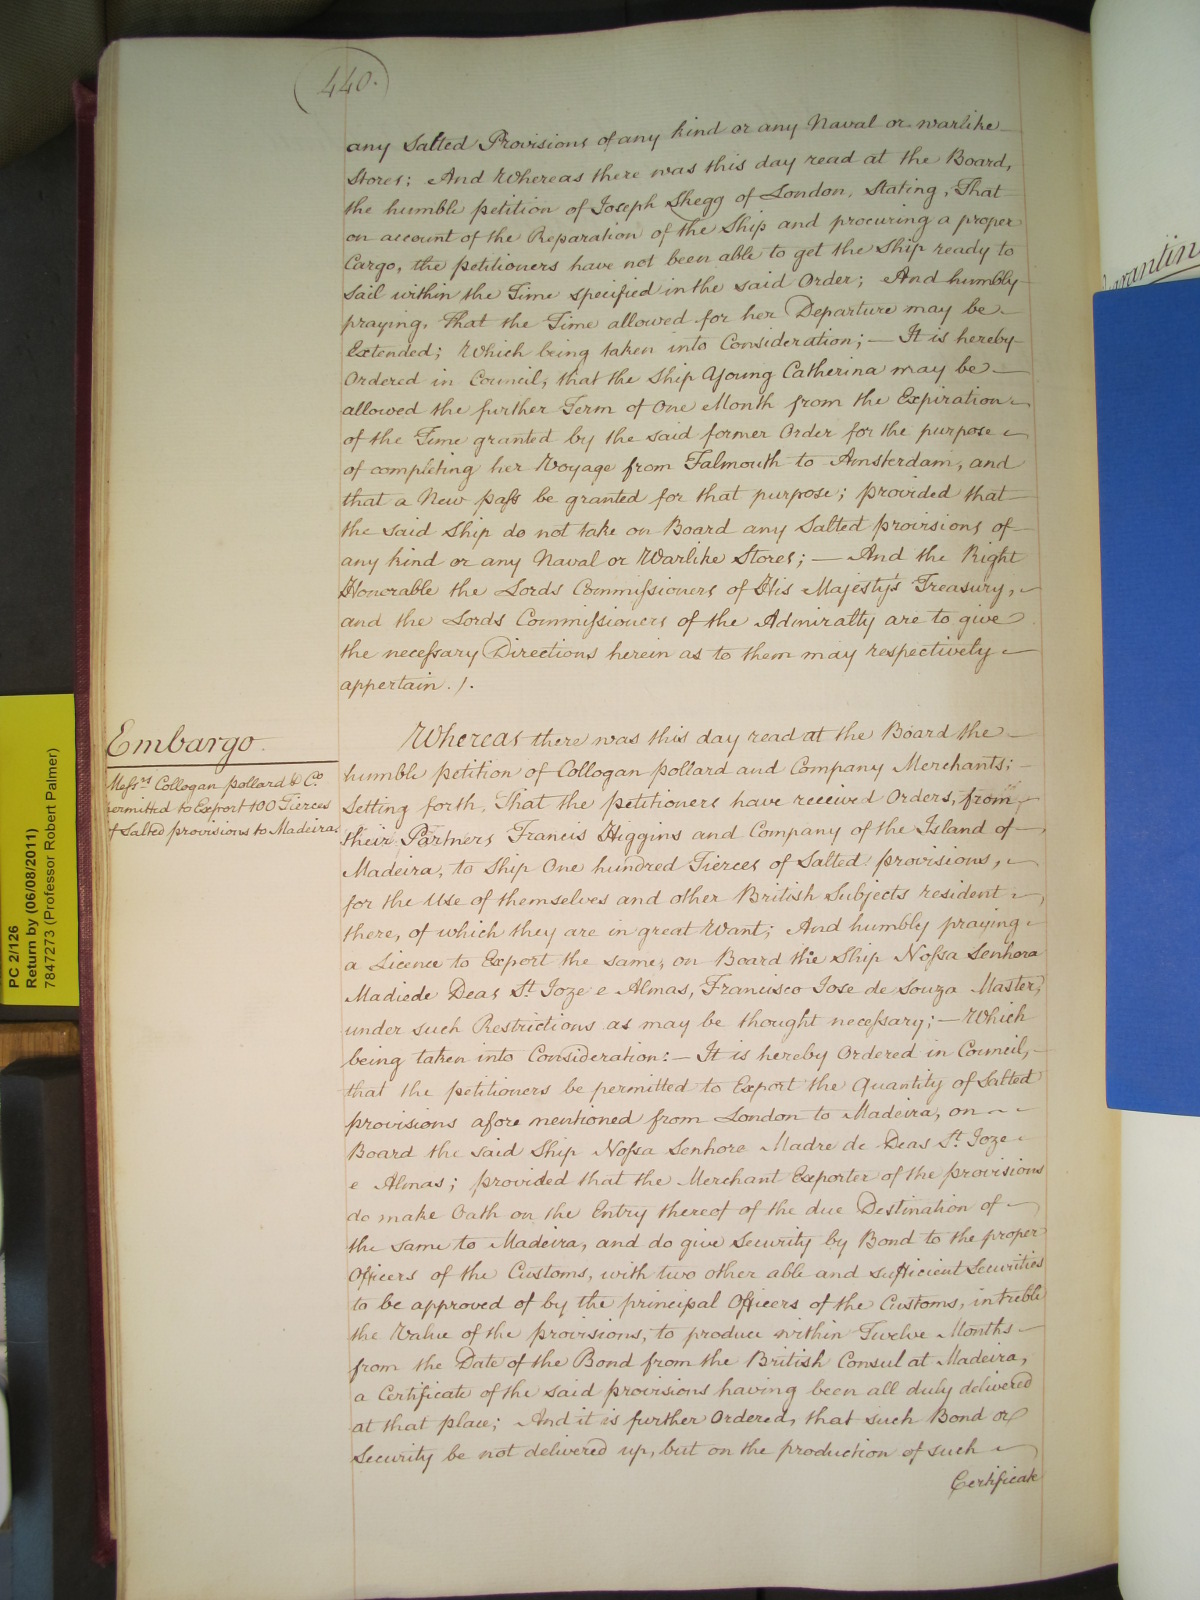 440.
any Salted Provisions of any kind or any Naval or warlike
Stores; And Whereas there was this day read at the Board,
the humble petition of Joseph Skegg of London, Stating, That
on account of the Reparation of the Ship and procuring a proper
Cargo, the petitioners have not been able to get the Ship ready to
Sail within the Time specified in the said Order; And humbly
praying, That the Time allowed for her Departure may be
Extended; Which being taken into Consideration; — It is hereby
Ordered in Council, that the Ship Young Catherina may be
allowed the further Term of One Month from the Expiration
of the Time granted by the said former Order for the purpose
of completing her Voyage from Falmouth to Amsterdam, and
that a New paſs be granted for that purpose; provided that
the said Ship do not take on Board any Salted provisions of
any kind or any Naval or Warlike Stores; — And the Right
Honorable the Lords Commiſsioners of His Majesty's Treasury,
and the Lords Commiſsioners of the Admiralty are to give
the neceſsary Directions herein as to them may respectively
appertain ./.
Embargo.
Meſsrs Collogan pollard & Co.
permitted to Export 100 Tierces
of Salted provisions to Madeira.
Whereas there was this day read at the Board the
humble petition of Collogan pollard and Company Merchants;
Setting forth, That the petitioners have received Orders, from
their Partners Francis Higgins and Company of the Island of
Madeira, to Ship One hundred Tierces of Salted provisions,
for the Use of themselves and other British Subjects resident
there, of which they are in great Want; And humbly praying
a Licence to Export the same, on Board the Ship Noſsa Senhora
Madiede Deas St. Joze e Almas, Francisco Jose de Souza Master,
under such Restrictions as may be thought neceſsary; — Which
being taken into Consideration: — It is hereby Ordered in Council,
that the petitioners be permitted to Export the Quantity of Salted
provisions afore mentioned from London to Madeira, on
Board the said Ship Noſsa Senhora Madre de Deas St. Joze
e Almas; provided that the Merchant Exporter of the provisions
do make Oath on the Entry thereof of the due Destination of
the same to Madeira, and do give Security by Bond to the proper
Officers of the Customs, with two other able and sufficient Securities
to be approved of by the principal Officers of the Customs, in treble
the Value of the provisions, to produce within Twelve Months
from the Date of the Bond from the British Consul at Madeira,
a Certificate of the said provisions having been all duly delivered
at that place; And it is further Ordered, that such Bond or
Security be not delivered up, but on the production of such
Certificate
PC 2/126
Return by (06/08/2011)
7847273 (Professor Robert Palmer)